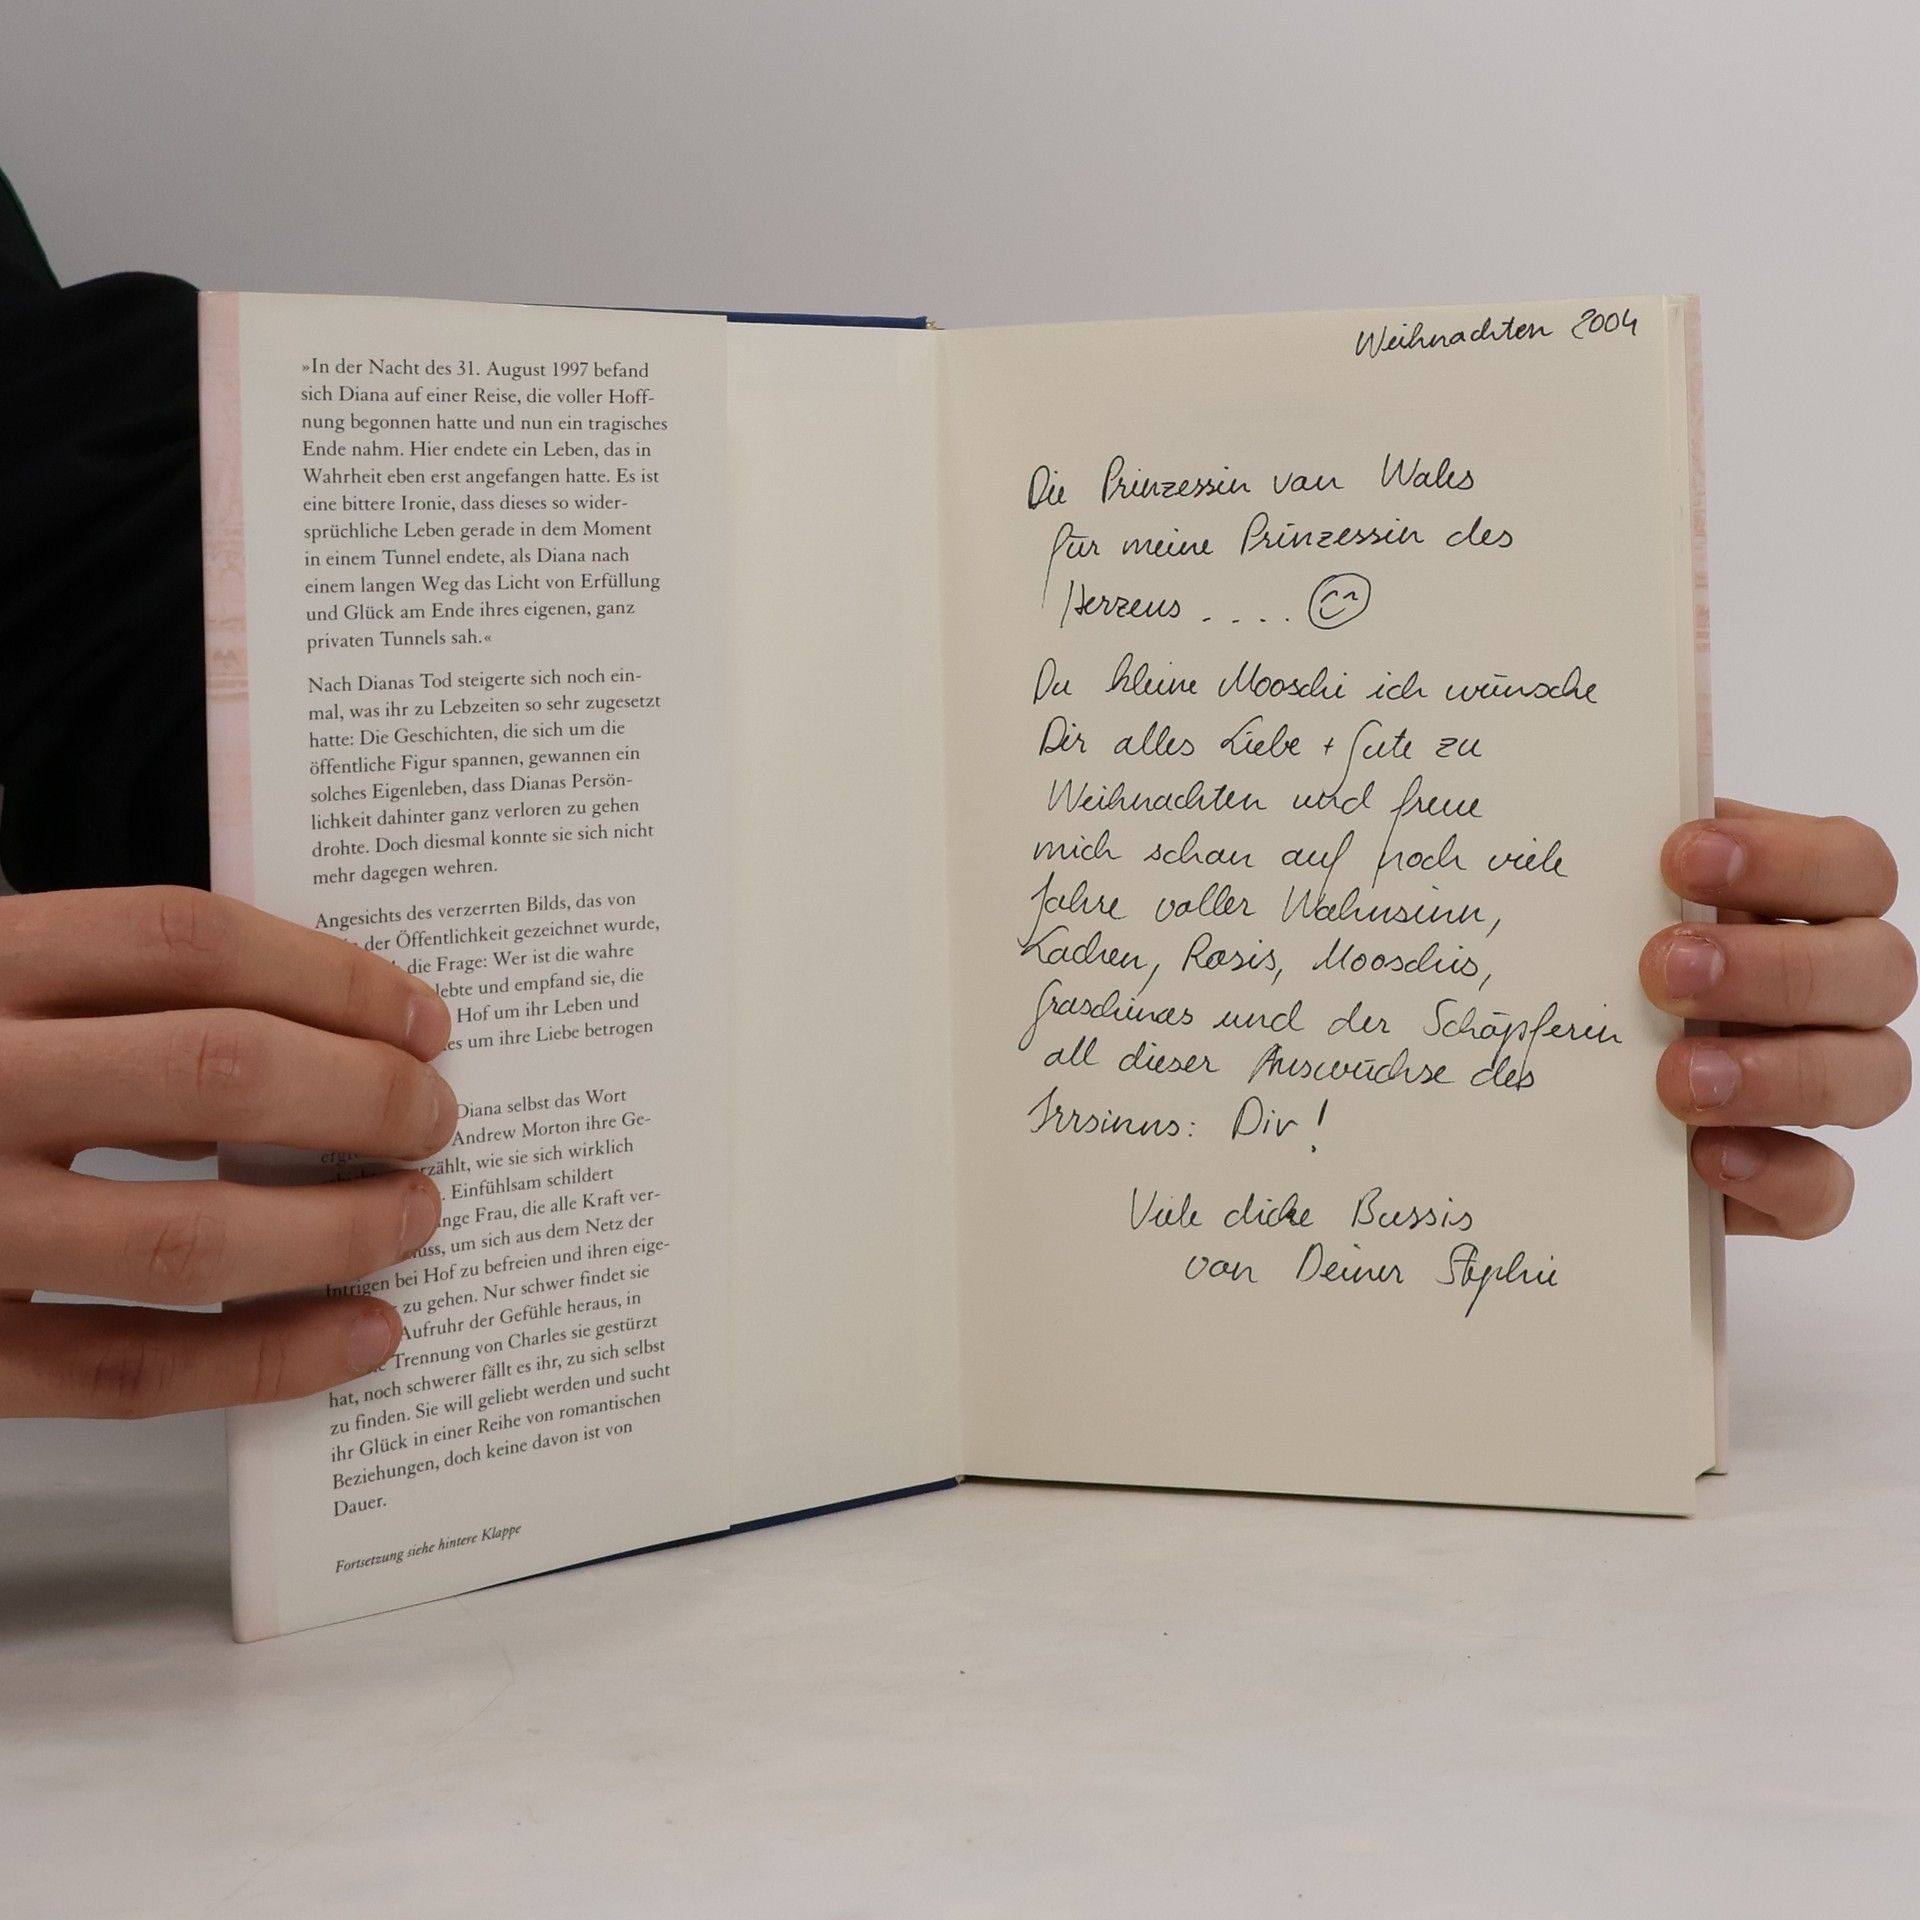 »In der Nacht des 31. August 1997 befand
sich Diana auf einer Reise, die voller Hoff-
nung begonnen hatte und nun ein tragisches
Ende nahm. Hier endete ein Leben, das in
Wahrheit eben erst angefangen hatte. Es ist
eine bittere Ironie, dass dieses so wider-
sprüchliche Leben gerade in dem Moment
in einem Tunnel endete, als Diana nach
einem langen Weg das Licht von Erfüllung
und Glück am Ende ihres eigenen, ganz
privaten Tunnels sah.«
Nach Dianas Tod steigerte sich noch ein-
mal, was ihr zu Lebzeiten so sehr zugesetzt
hatte: Die Geschichten, die sich um die
öffentliche Figur spannen, gewannen ein
solches Eigenleben, dass Dianas Persön-
lichkeit dahinter ganz verloren zu gehen
drohte. Doch diesmal konnte sie sich nicht
mehr dagegen wehren.
Angesichts des verzerrten Bilds, das von
der Öffentlichkeit gezeichnet wurde,
die Frage: Wer ist die wahre
und empfand sie, die
Hof um ihr Leben und
um ihre Liebe betrogen
Diana selbst das Wort
Andrew Morton ihre Ge-
wie sie sich wirklich
Einfühlsam schildert
Frau, die alle Kraft ver-
um sich aus dem Netz der
Intrigen bei Hof zu befreien und ihren eige-
zu gehen. Nur schwer findet sie
Aufruhr der Gefühle heraus, in
Trennung von Charles sie gestürzt
hat, noch schwerer fällt es ihr, zu sich selbst
zu finden. Sie will geliebt werden und sucht
ihr Glück in einer Reihe von romantischen
Beziehungen, doch keine davon ist von
Dauer.
Fortsetzung siehe hintere Klappe
Weihnachten 2004
Die Prinzessin von Wales
für meine Prinzessin des
Herzens . . . .
Du kleine Mooschi ich wünsche
Dir alles Liebe + Gute zu
Weihnachten und freue
mich schon auf noch viele
Jahre voller Wahnsinn,
Lachen, Rosis, Mooschis,
und der Schöpferin
all dieser Auswüchse des
Irrsinns: Dir!
Viele dicke Bussis
von Deiner Stephie